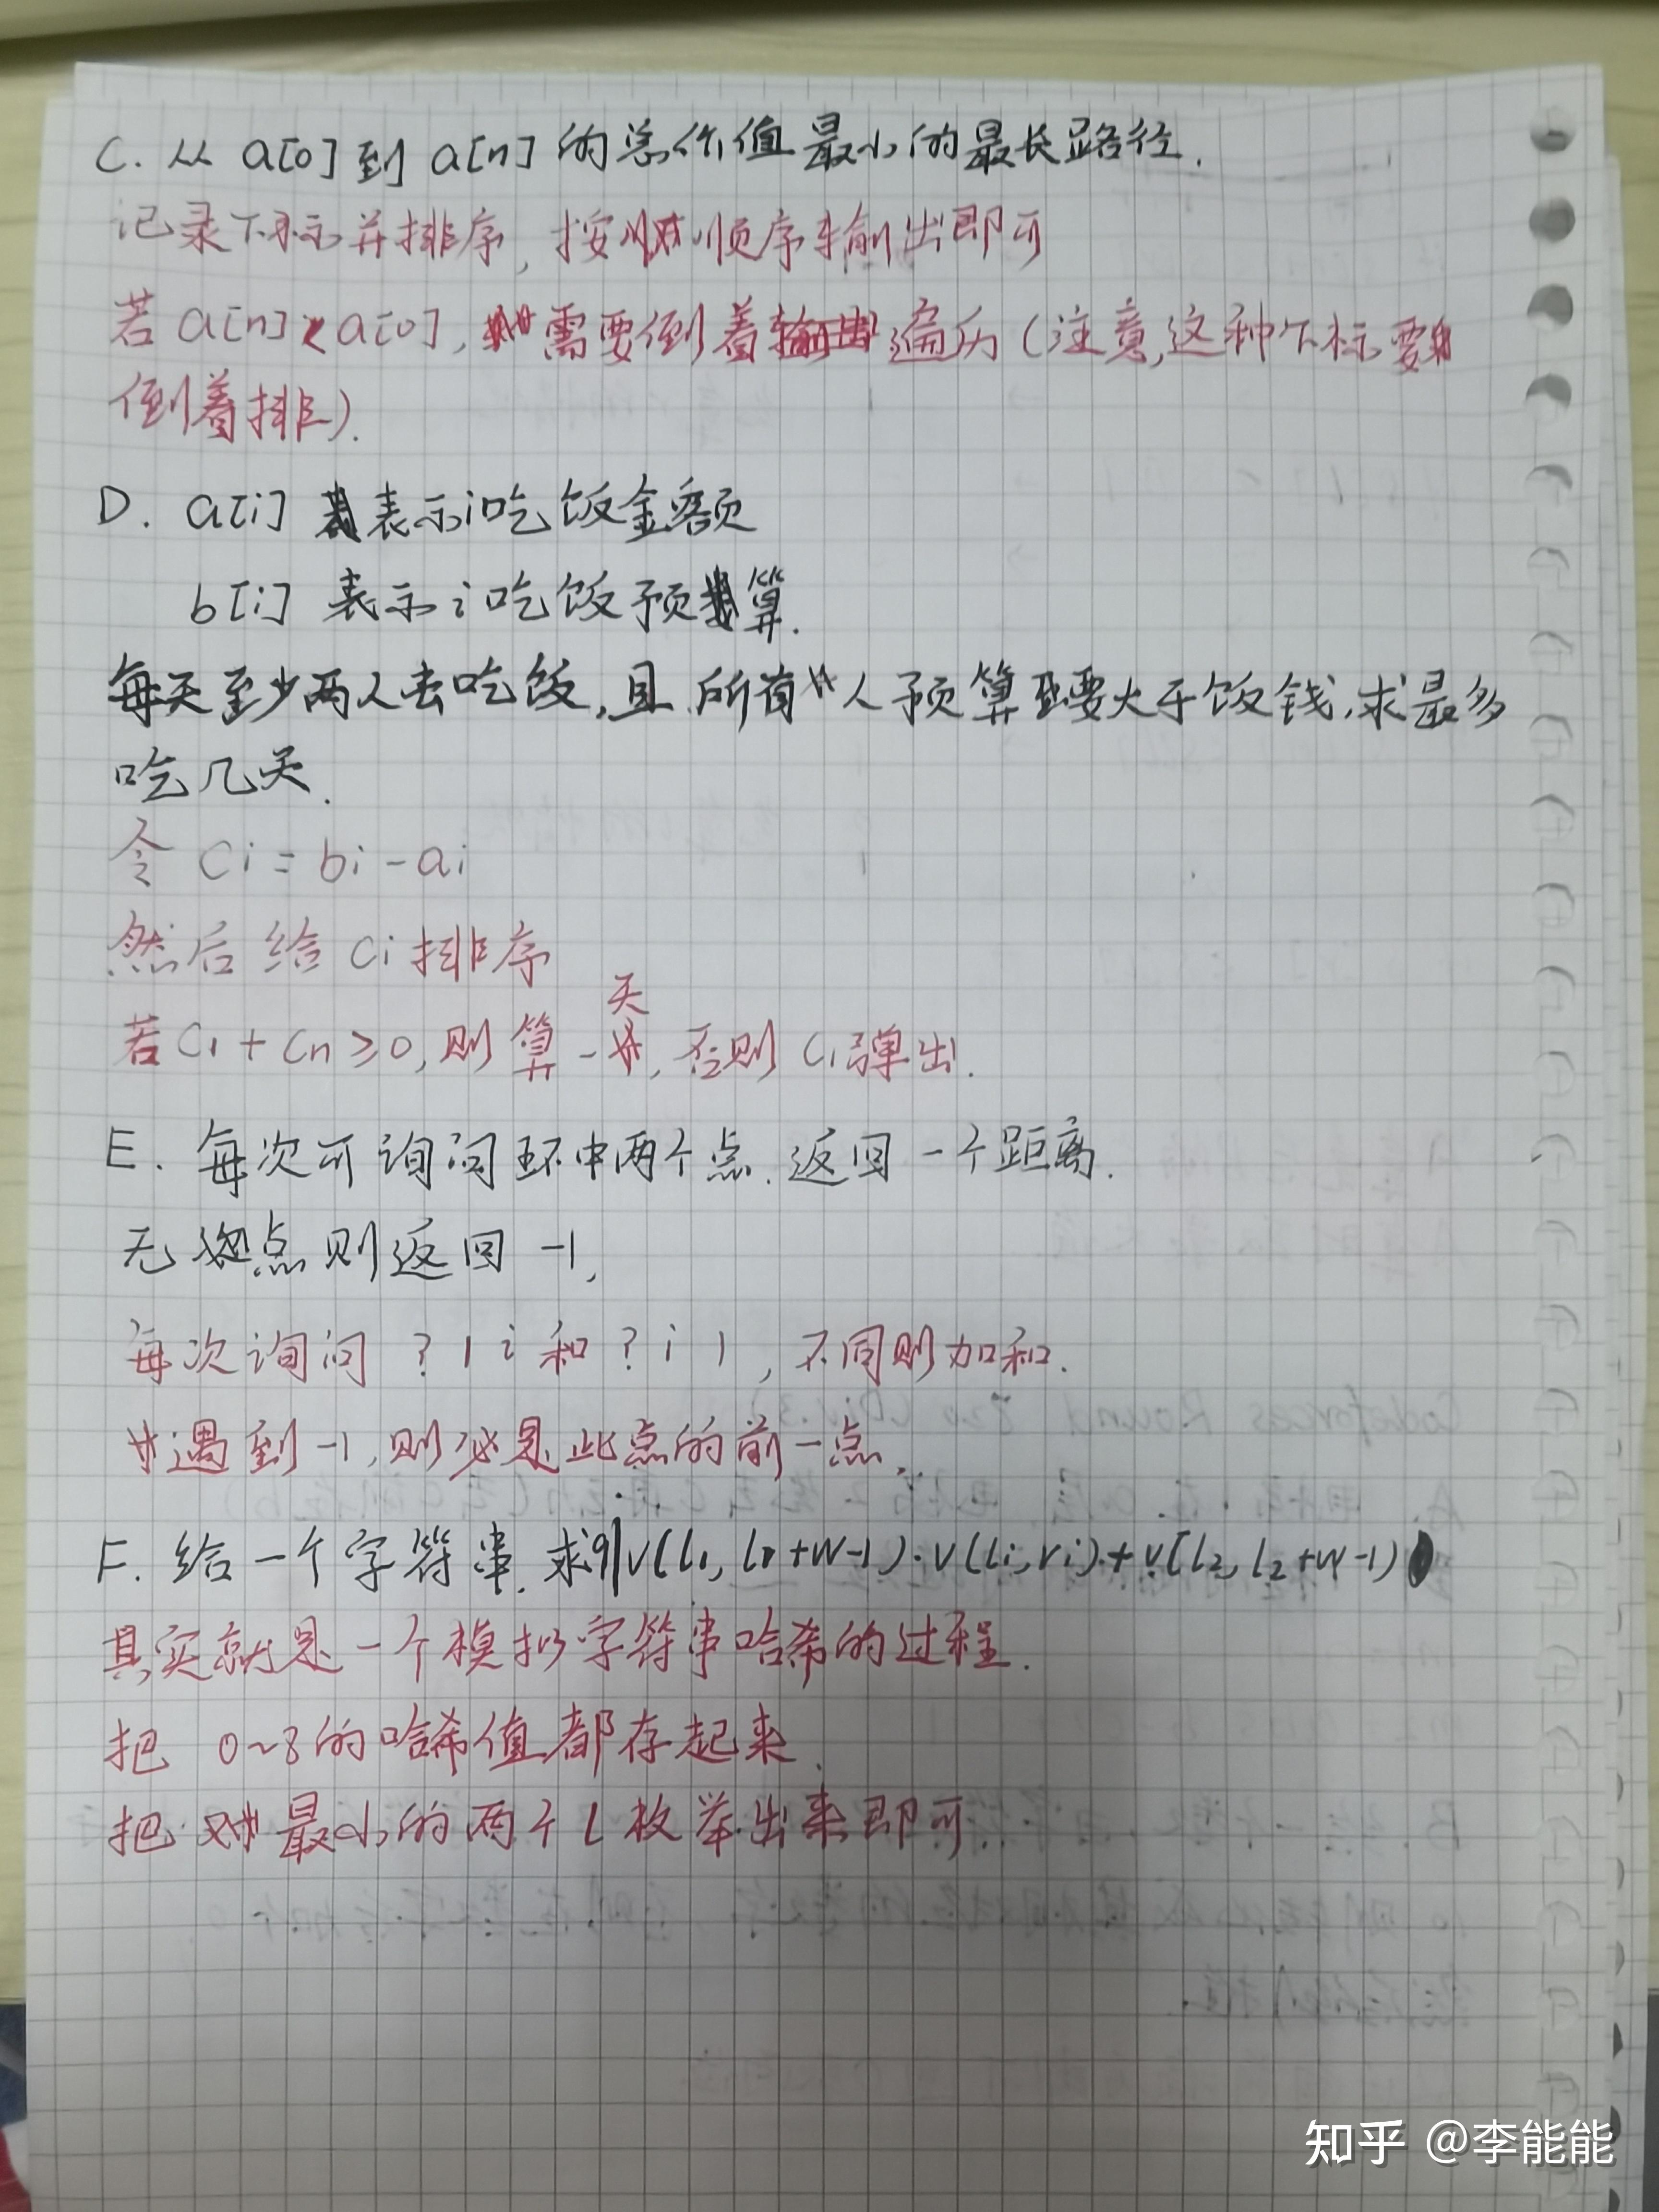 C. 从 a[0] 到 a[n] 的总价值最小的最长路径.
记录下标并排序, 按顺序输出即可
若 a[n] < a[0], 需要倒着遍历 (注意,这种下标要
倒着排).
D. a[i] 表示i吃饭金额
b[i] 表示i吃饭预算.
每天至少两人去吃饭,且所有人预算要大于饭钱,求最多
吃几天.
令 Ci = bi - ai
然后给 Ci 排序
若 C1 + Cn ≥ 0, 则算一天, 否则 C1弹出.
E. 每次可询问环中两个点. 返回一个距离.
无点则返回 -1,
每次询问 ? 1 i 和 ? i 1, 不同则加和.
遇到 -1, 则必是此点的前一点.
F. 给一个字符串. 求9|V(l1, l1+W-1)·V(li, ri)+V(l2, l2+W-1)
其实就是一个模拟字符串哈希的过程.
把 0~8的哈希值都存起来.
把最小的两个L枚举出来即可.
Codeforces Round 820 (Div.3)
知乎 @李能能